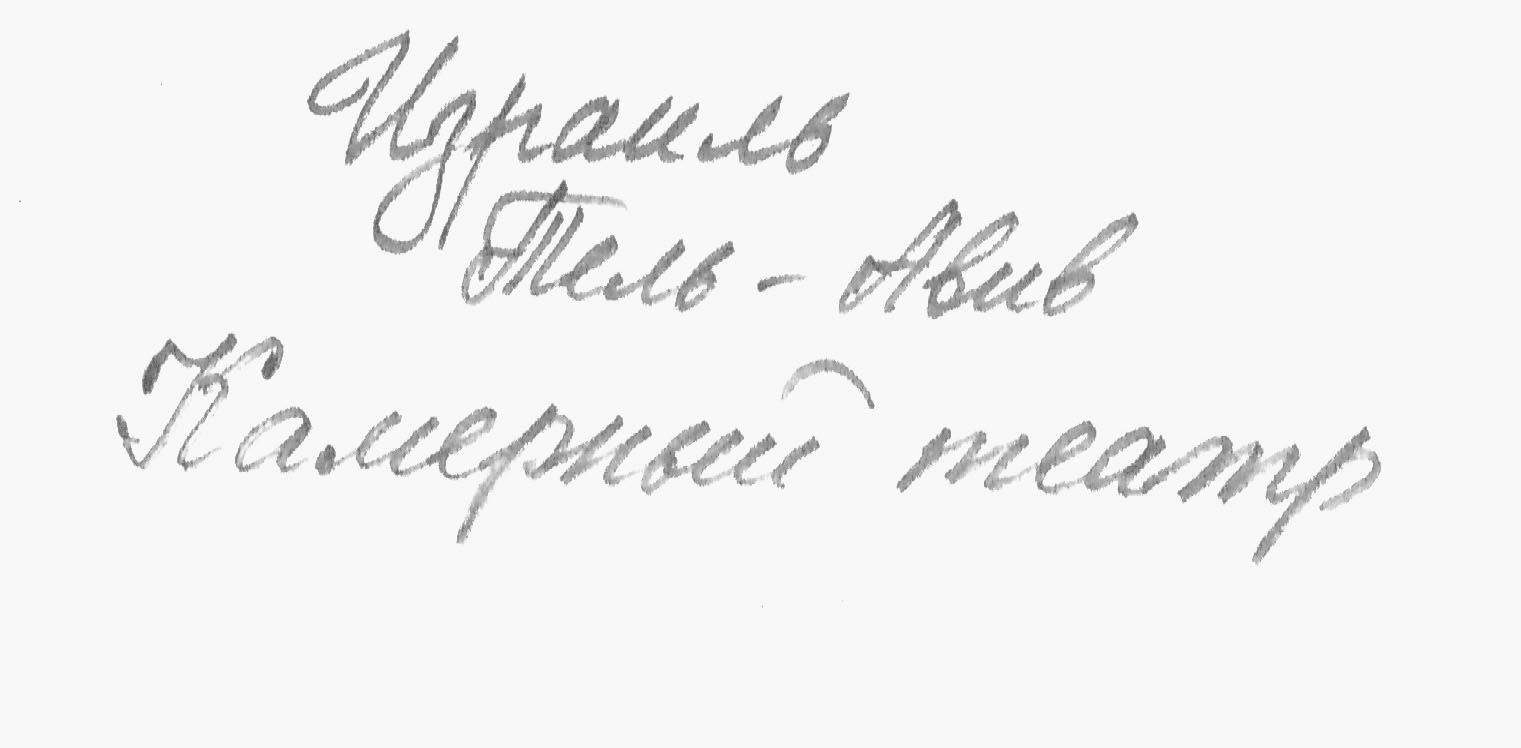 Израиль
Тель - Авив
Камерный театр